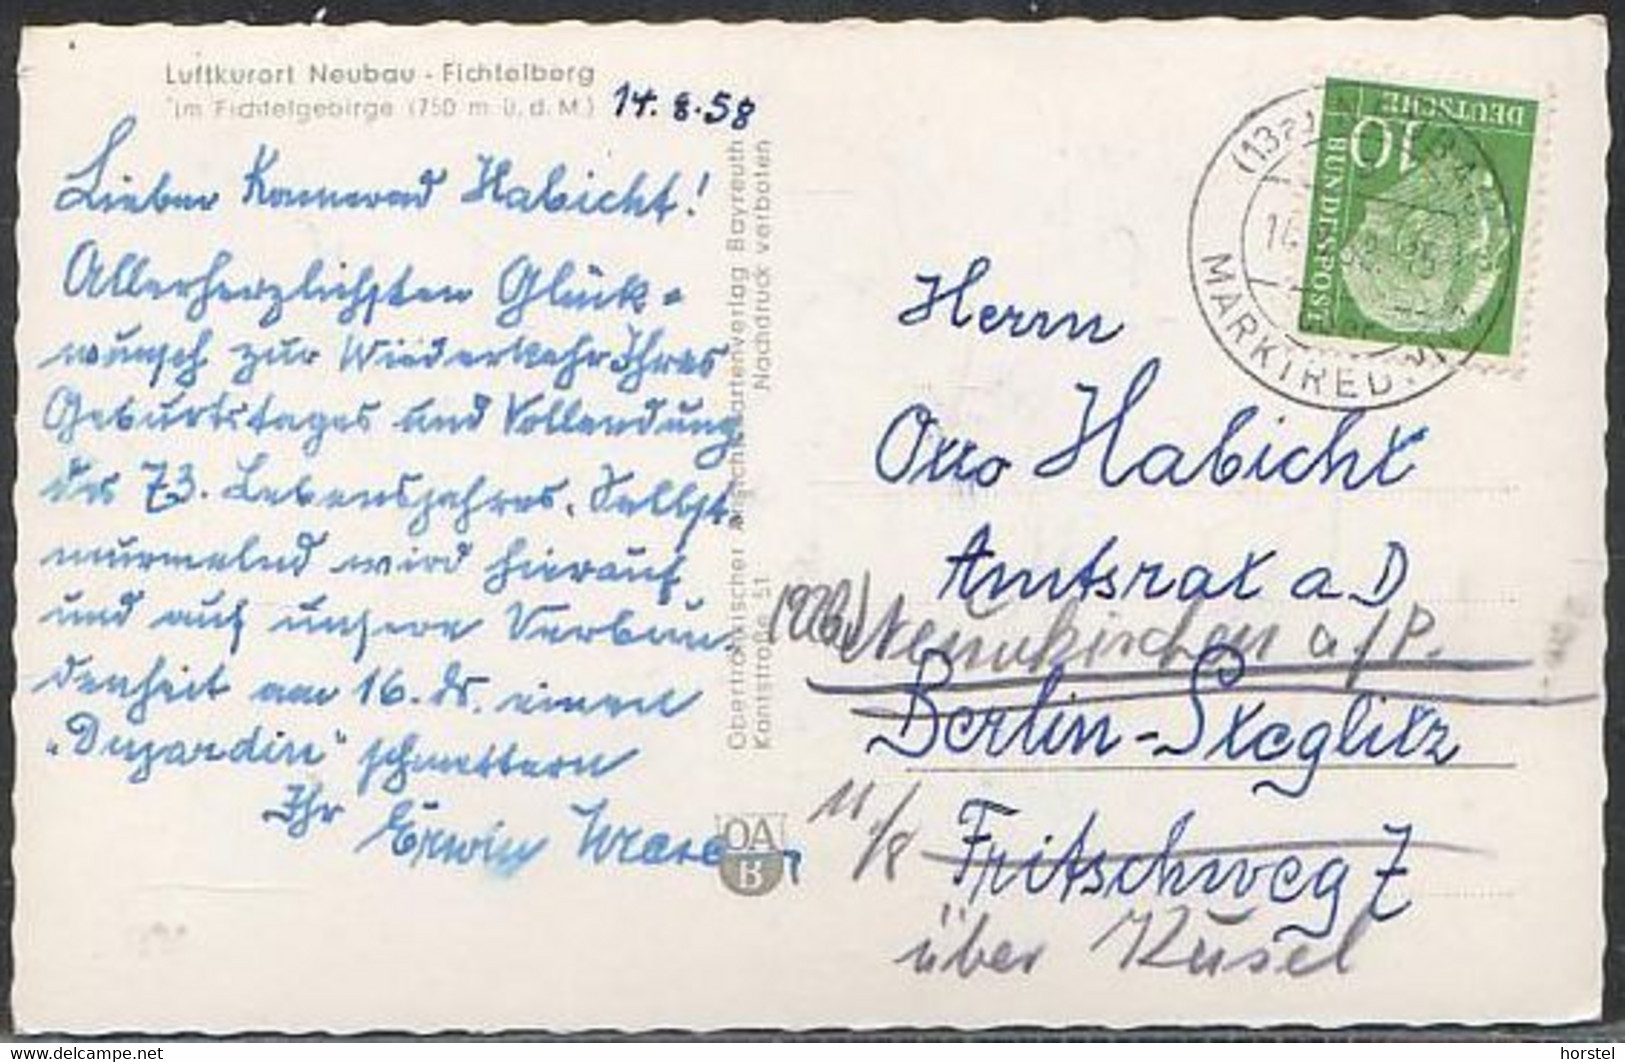 Luftkurort Neubau - Fichtelberg
im Fichtelgebirge (750 m ü. d. M.)
14. 8. 58
Lieber Kamerad Habicht!
Allerherzlichsten Glück-
wunsch zur Wiederkehr Ihres
Geburtstages und Vollendung
des 73. Lebensjahres. Selbst
murmelnd wird hierauf
und auf unsere Verbun-
denheit am 16. ds. einen
„Dujardin" schmettern
Ihr Erwin
Oberfränkischer Ansichtskartenverlag Bayreuth
Kantstraße 51 Nachdruck verboten
OA
B
DEUTSCHE
BUNDESPOST
10
(13a)
MARKTREDWITZ
Herrn
Otto Habicht
Amtsrat a D
(22b) Neunkirchen a/P.
Berlin-Steglitz
Fritschweg 7
über Kusel
horstel